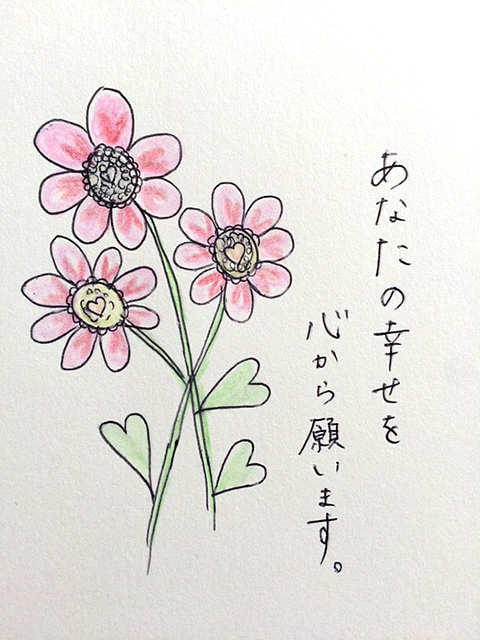 あなたの幸せを
心から願います。